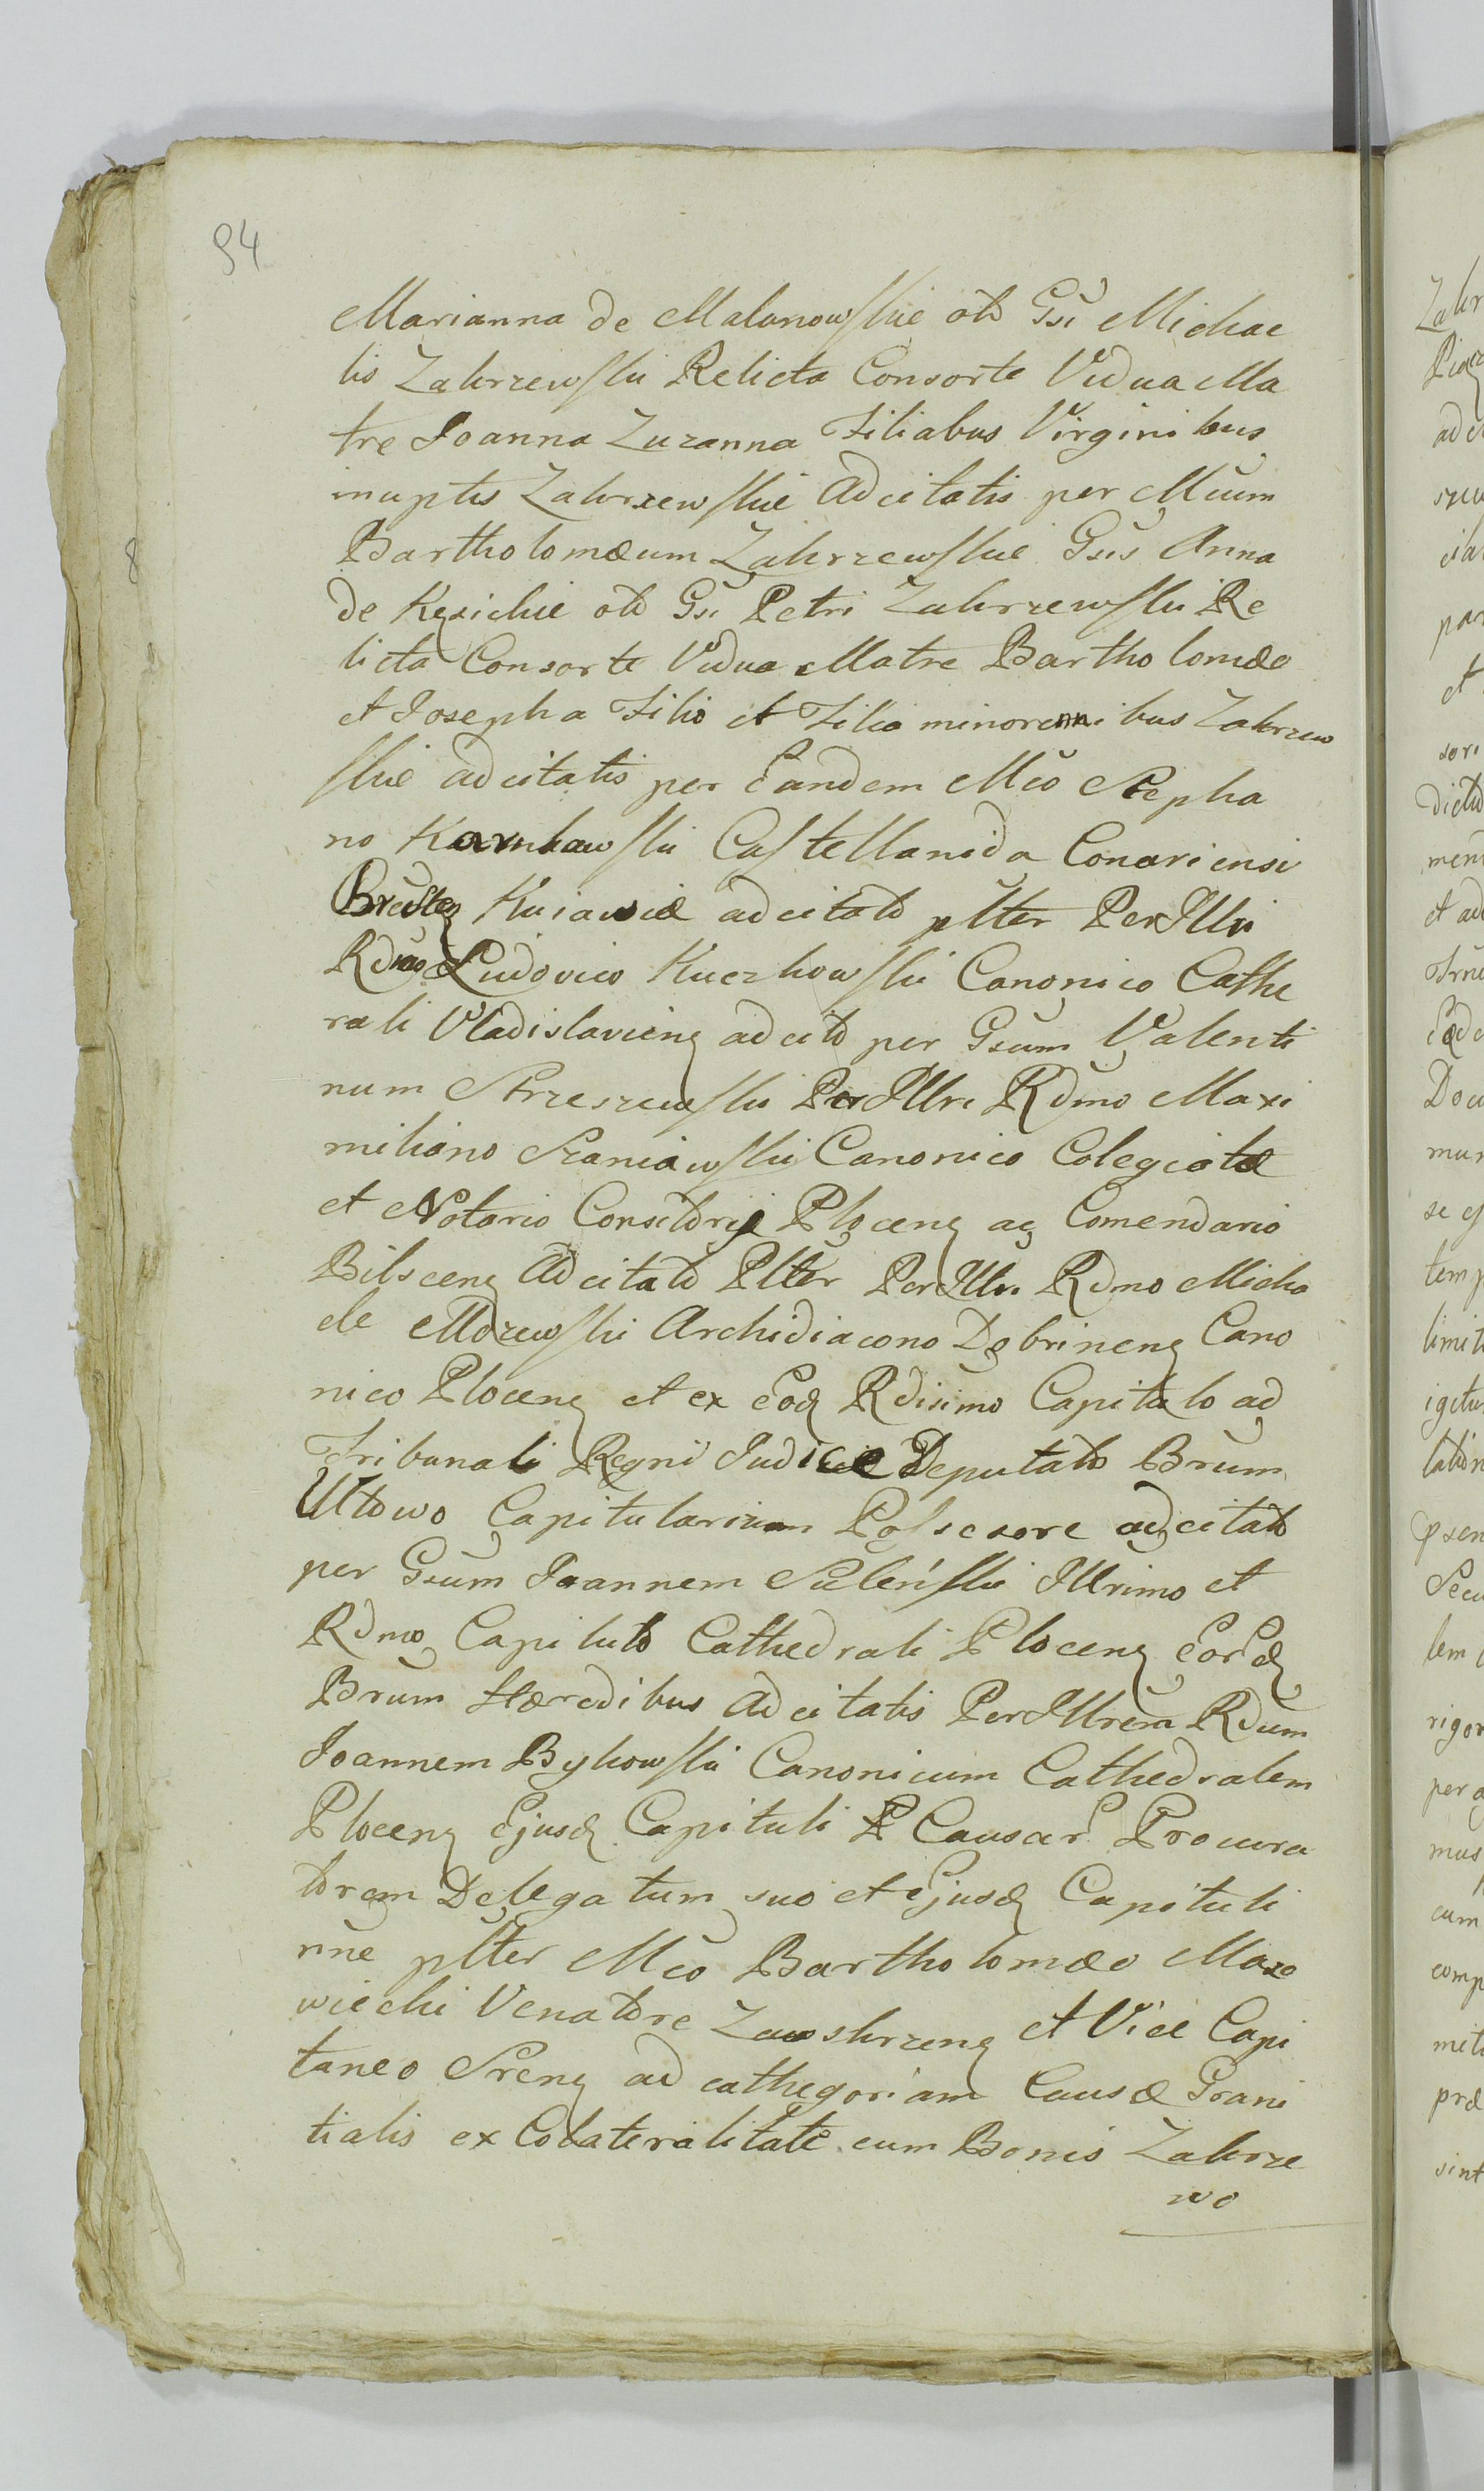 94
Marianna de Malanowskie olb Gsi Michae
lis Zakrzewski Relicta Consorte Vidua Ma
tre Joanna Zuzanna Filiabus Virginibus
inuptis Zakrzewskie Adcitatis per Mcum
Bartholomæum Zakrzewskie Gsis Anna
de Kęsickie olb Gsi Petri Zakrzewski Re
licta Consorte Vidua Matre Bartholomæo
et Josepha Filio et Filia minorennibus Zakrzew
skie adcitatis per Eandem Mco Stepha
no Karnkowski Castellanida Conariensi
Kuiaviæ adcitato plter Perillri
Rdmo Ludovico Kuczkowski Canonico Cathe
rali Vladislavieng adcito per Gsum Valenti
num Strzeszewski Per Illri Rdmo Maxi
miliano Szaniawski Canonico Colegiatæ
et Notario Consitorij Ploceng aę Comendario
Bilsceng Adcitato Plter Per Illri Rdmo Micha
ele Mdzewski Archidiacono Dobrineng Cano
nico Ploceng et ex Eodę Rdisimo Capitulo ad
Tribunali Regni Judice Deputato Brum
Ułtowo Capitularium Possesore adcitato
per Gsum Joannem Sulenskie Illrimo et
Rdmo Capitulo Cathedrali Ploceng Eordę
Brum Hæredibus Adcitatis Per Illrem Rdum
Joannem Bykowski Canonicum Cathedralem
Ploceng Ejusdę Capituli P Causar Procura
torem Delegatum suo et Ejusdę Capituli
nne plter Mco Bartholomæo Mazo
wiecki Venatore Zawskrzeng et Vice Capi
taneo Sreng ad cathegoriam Causæ Grani
tialis ex Colateralitate cum Bonis Zakrze
wo
8